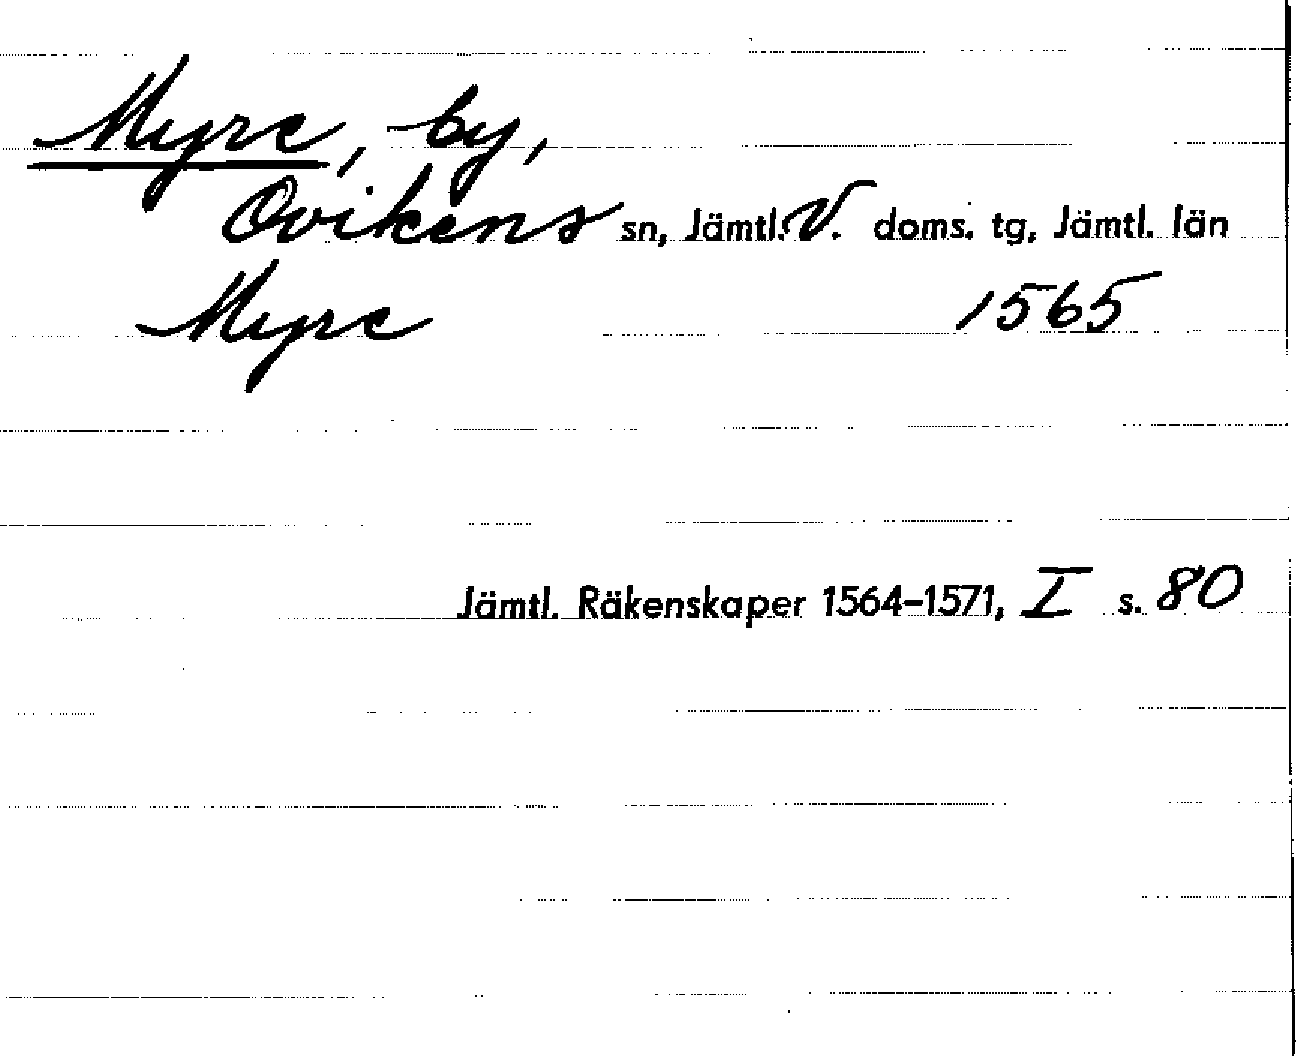 Myre, by,
Ovikens sn, Jämtl. V. doms. tg, Jämtl. län
Myre 1565
Jämtl. Räkenskaper 1564-1571, I s. 80